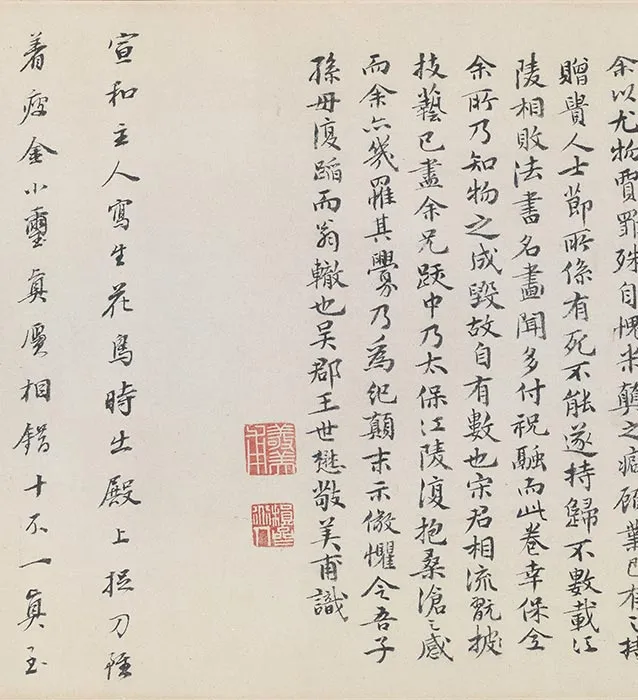 余以尤物賈罪殊自愧米顛之癖顧業已有之持
贈貴人士節所係有死不能遂持歸不數載江
陵相敗法書名畫聞多付祝融而此卷幸保全
余所乃知物之成毀故自有數也宋君相流翫披
技藝已盡余兄跋中乃太保江陵復抱桑滄之感
而余亦幾罹其釁乃為紀顛末示儆懼令吾子
孫毋復蹈而翁轍也吳郡王世懋敬美甫識
宣和主人寫生花鳥時出殿上捉刀雖
着瘦金小璽真贋相錯十不一真至